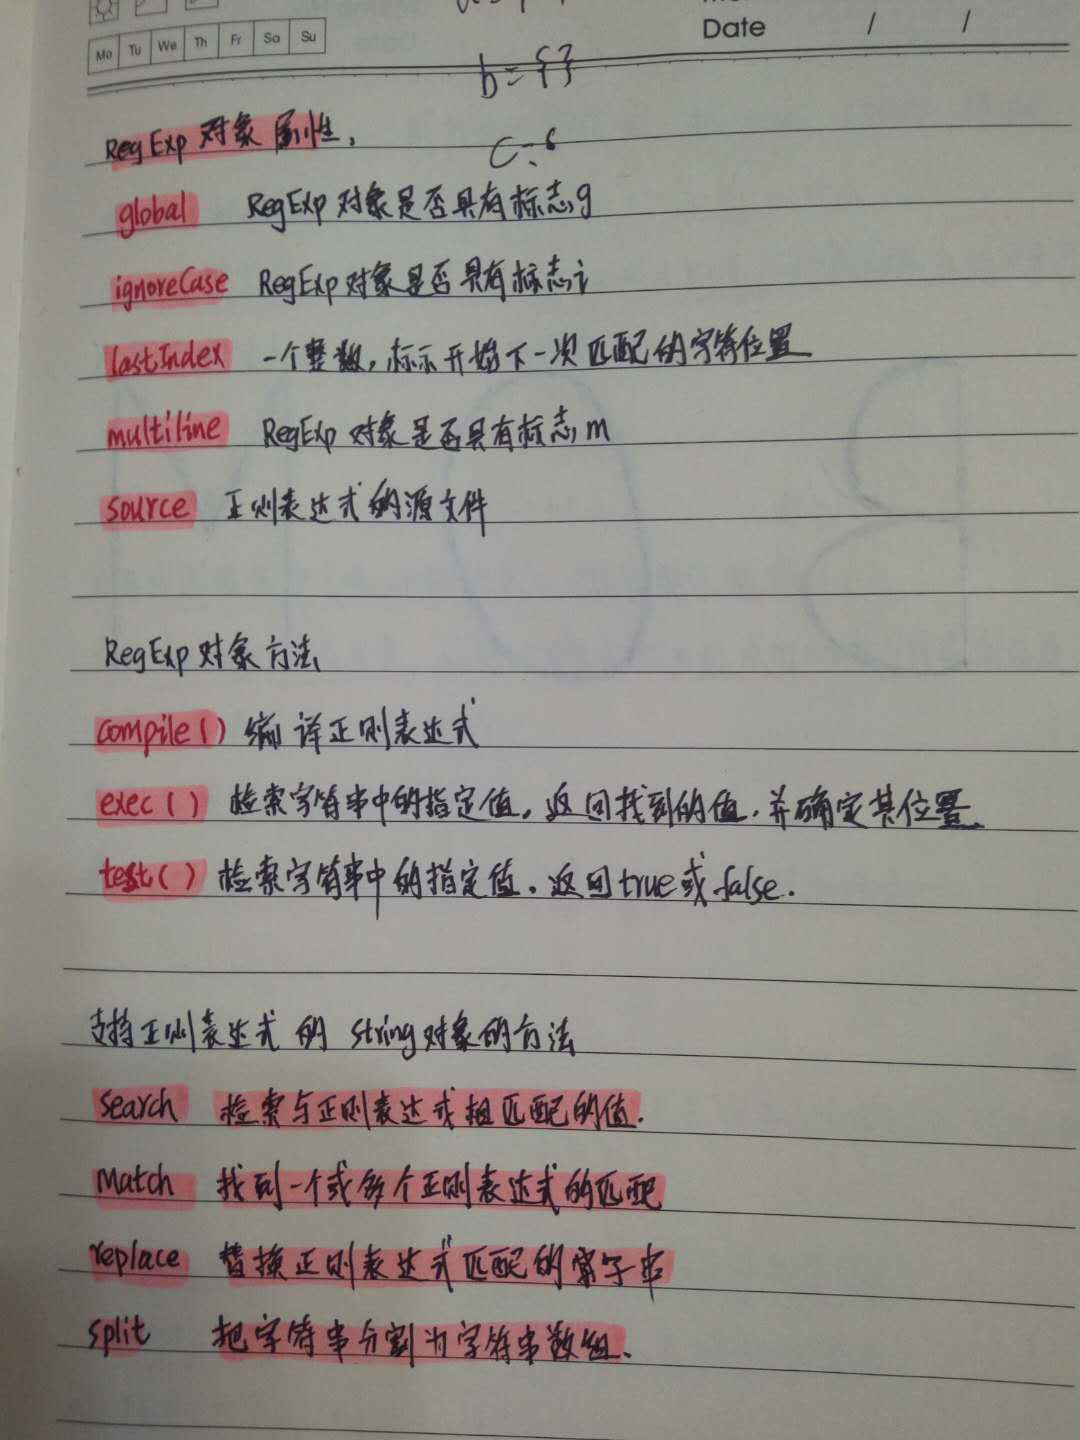 Mo Tu We Th Fr Sa Su
Date / /
b = { }
RegExp 对象属性.
global RegExp 对象是否具有标志g
ignoreCase RegExp 对象是否具有标志i
lastIndex 一个整数,标示开始下一次匹配的字符位置
multiline RegExp 对象是否具有标志m
source 正则表达式的源文件
RegExp对象方法
compile() 编译正则表达式
exec() 检索字符串中的指定值,返回找到的值.并确定其位置
test() 检索字符串中的指定值.返回true或false.
支持正则表达式的 String对象的方法
search 检索与正则表达式相匹配的值.
Match 找到一个或多个正则表达式的匹配
replace 替换正则表达式匹配的字串
split 把字符串分割为字符串数组.